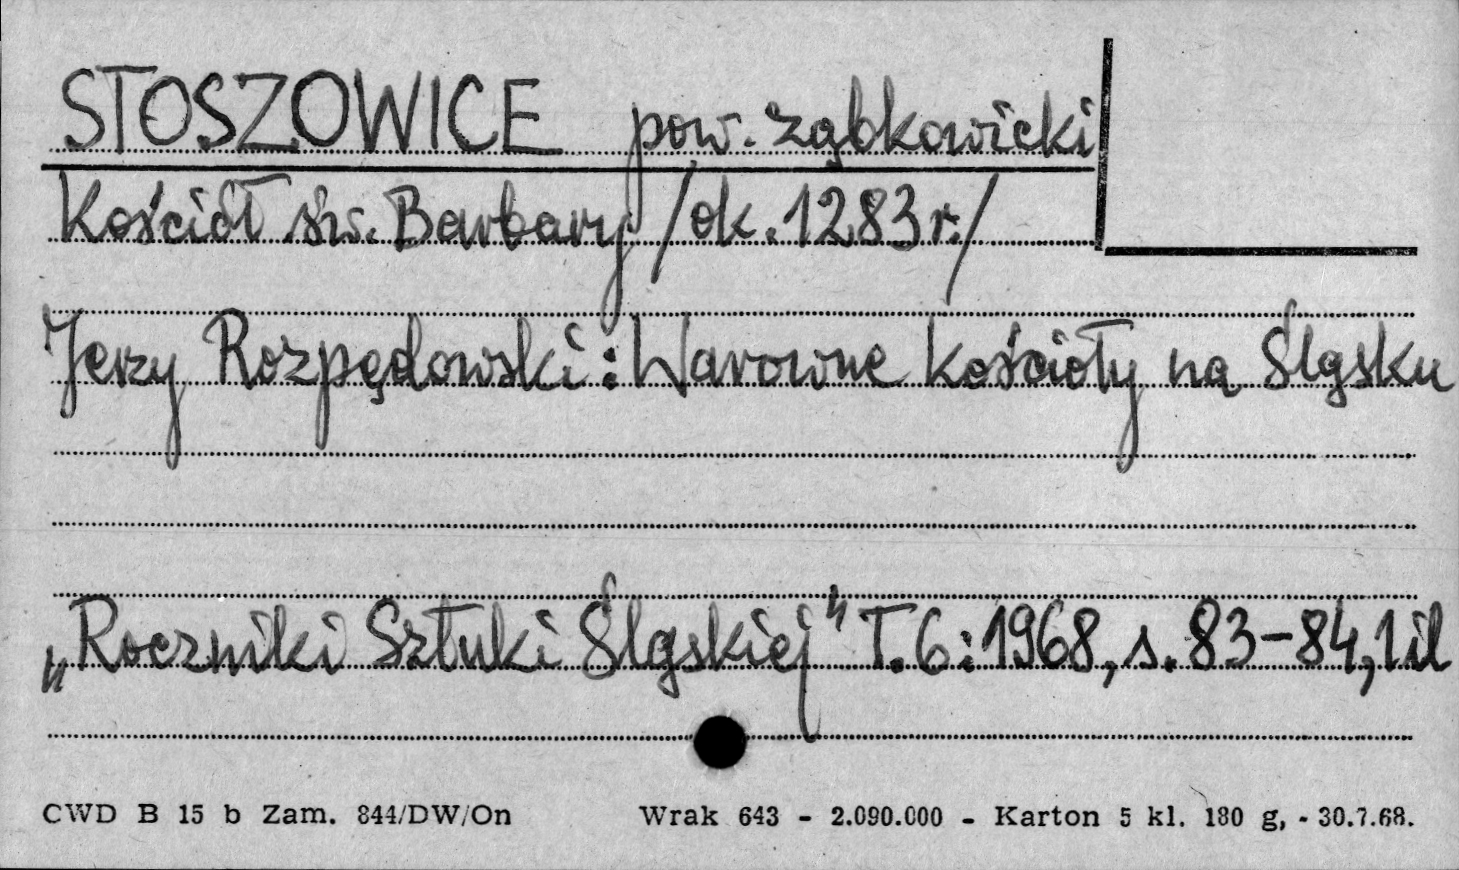 STOSZOWICE pow. ząbkowicki
Kościół św. Barbary /ok. 1283 r./
Jerzy Rozpędowski: Warowne kościoły na Śląsku
„Roczniki Sztuki Śląskiej" T. 6: 1968, s. 83-84, 1 il
CWD B 15 b Zam. 844/DW/On Wrak 643 - 2.090.000 - Karton 5 kl. 180 g, - 30.7.68.